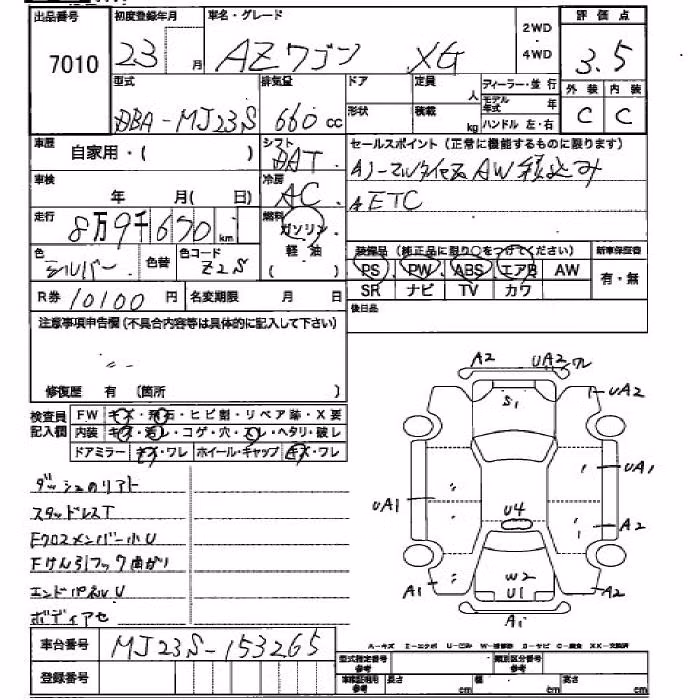 出品番号 初度登録年月 車名・グレード 2WD・4WD 評価点
7010 23 月 AZワゴン XG 3.5
型式 排気量 ドア 定員 人 フィーラー・並行 外装 内装
DBA-MJ23S 660 cc 形状 積載 kg モデル年式 年 C C
ハンドル 左・右
車歴 自家用・( ) シフト DAT セールスポイント(正常に機能するものに限ります)
車検 年 月( 日) 冷房 AC AW積込み
走行 8万9千670 km 燃料 ガソリン・軽油 ( ) ETC
色 シルバー 色替 色コード Z2S 装備品(純正品に限り○をつけてください) 新車保証書
PS PW ABS エアB AW 有・無
SR ナビ TV カワ
R券 10100 円 名変期限 月 日 後日品
注意事項申告欄(不具合内容等は具体的に記入して下さい)
修復歴 有 (箇所 )
検査員記入欄 FW キズ・飛石・ヒビ割・リペア跡・X要
内装 キズ・汚レ・コゲ・穴・スレ・ヘタリ・破レ
ドアミラー キズ・ワレ ホイール・キャップ キズ・ワレ
ダッシュのリアト
スタッドレスT
Fクロスメンバー小U
Fけん引フック曲がり
エンドパネルU
ボディアセ
A2 UA2 ワレ
S1 UA2
UA1 U4 UA1
A2
A1 W2 U1 A2
A1
A-キズ E-エクボ U-ヘコミ W-補修跡 S-サビ C-腐食 XX-交換済
車台番号 MJ23S-153265
登録番号
型式指定番号 参考 類別区分番号 参考
車庫証明用 参考 長さ cm 幅 cm 高さ cm